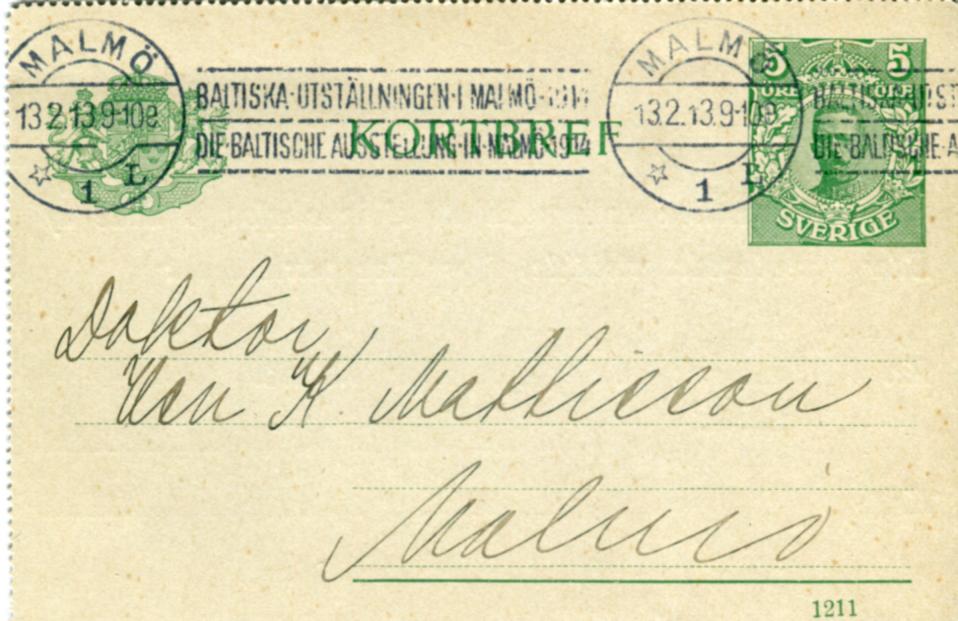 MALMÖ
13.2.13.9-10F
1 L
BALTISKA·UTSTÄLLNINGEN·I MALMÖ·1914
DIE·BALTISCHE AUSSTELLUNG·IN·MALMÖ·1914
KORTBREF
MALMÖ
13.2.13.9-10F
1 L
BALTISKA·UTST
DIE·BALTISCHE·A
5 5
ÖRE ÖRE
SVERIGE
Doktor
K. Mathisson
Malmö
1211